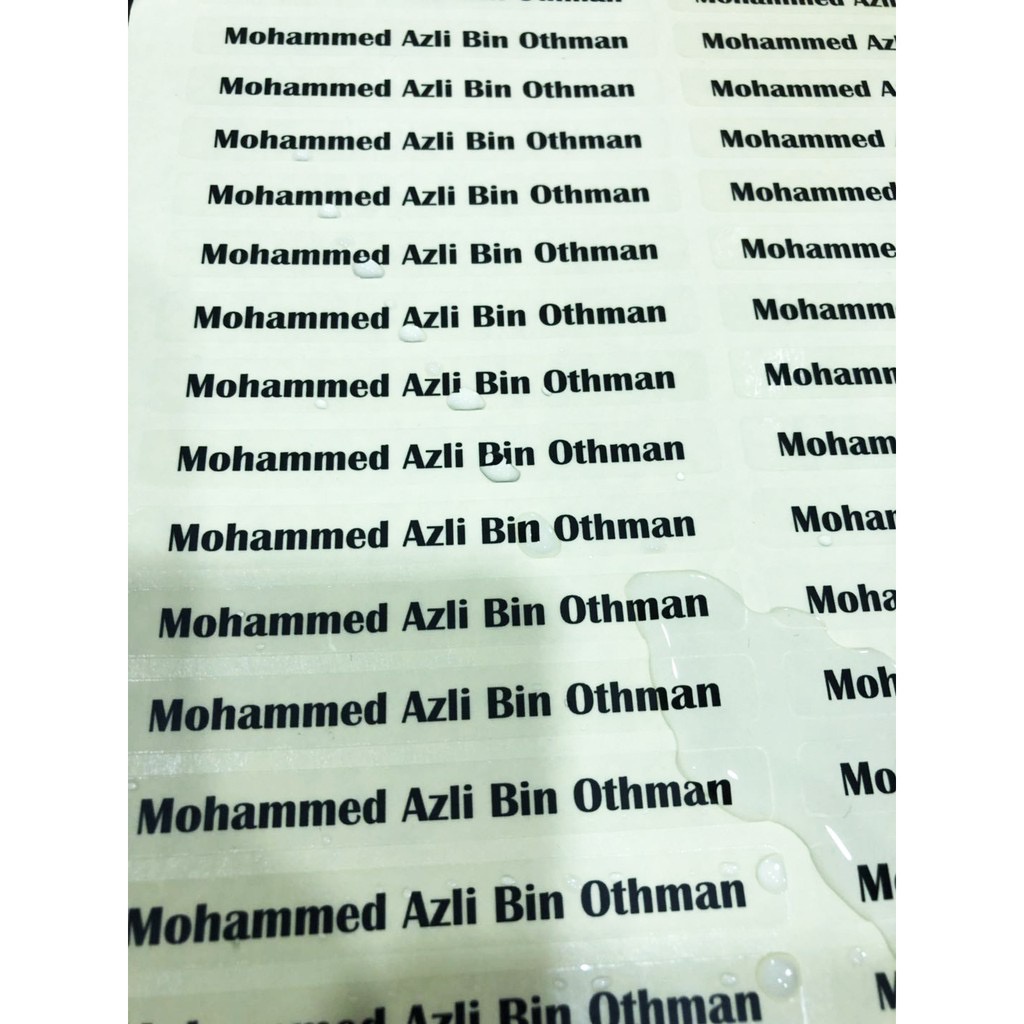 Mohammed Azli Bin Othman
Mohammed Azli Bin Othman
Mohammed Azli Bin Othman
Mohammed Azli Bin Othman
Mohammed Azli Bin Othman
Mohammed Azli Bin Othman
Mohammed Azli Bin Othman
Mohammed Azli Bin Othman
Mohammed Azli Bin Othman
Mohammed Azli Bin Othman
Mohammed Azli Bin Othman
Mohammed Azli Bin Othman
Mohammed Azli Bin Othman
Mohammed Azli Bin Othman
Mohammed Az
Mohammed A
Mohammed
Mohammed
Mohamme
Mohamm
Moham
Moham
Moha
Moha
Moh
Mo
M